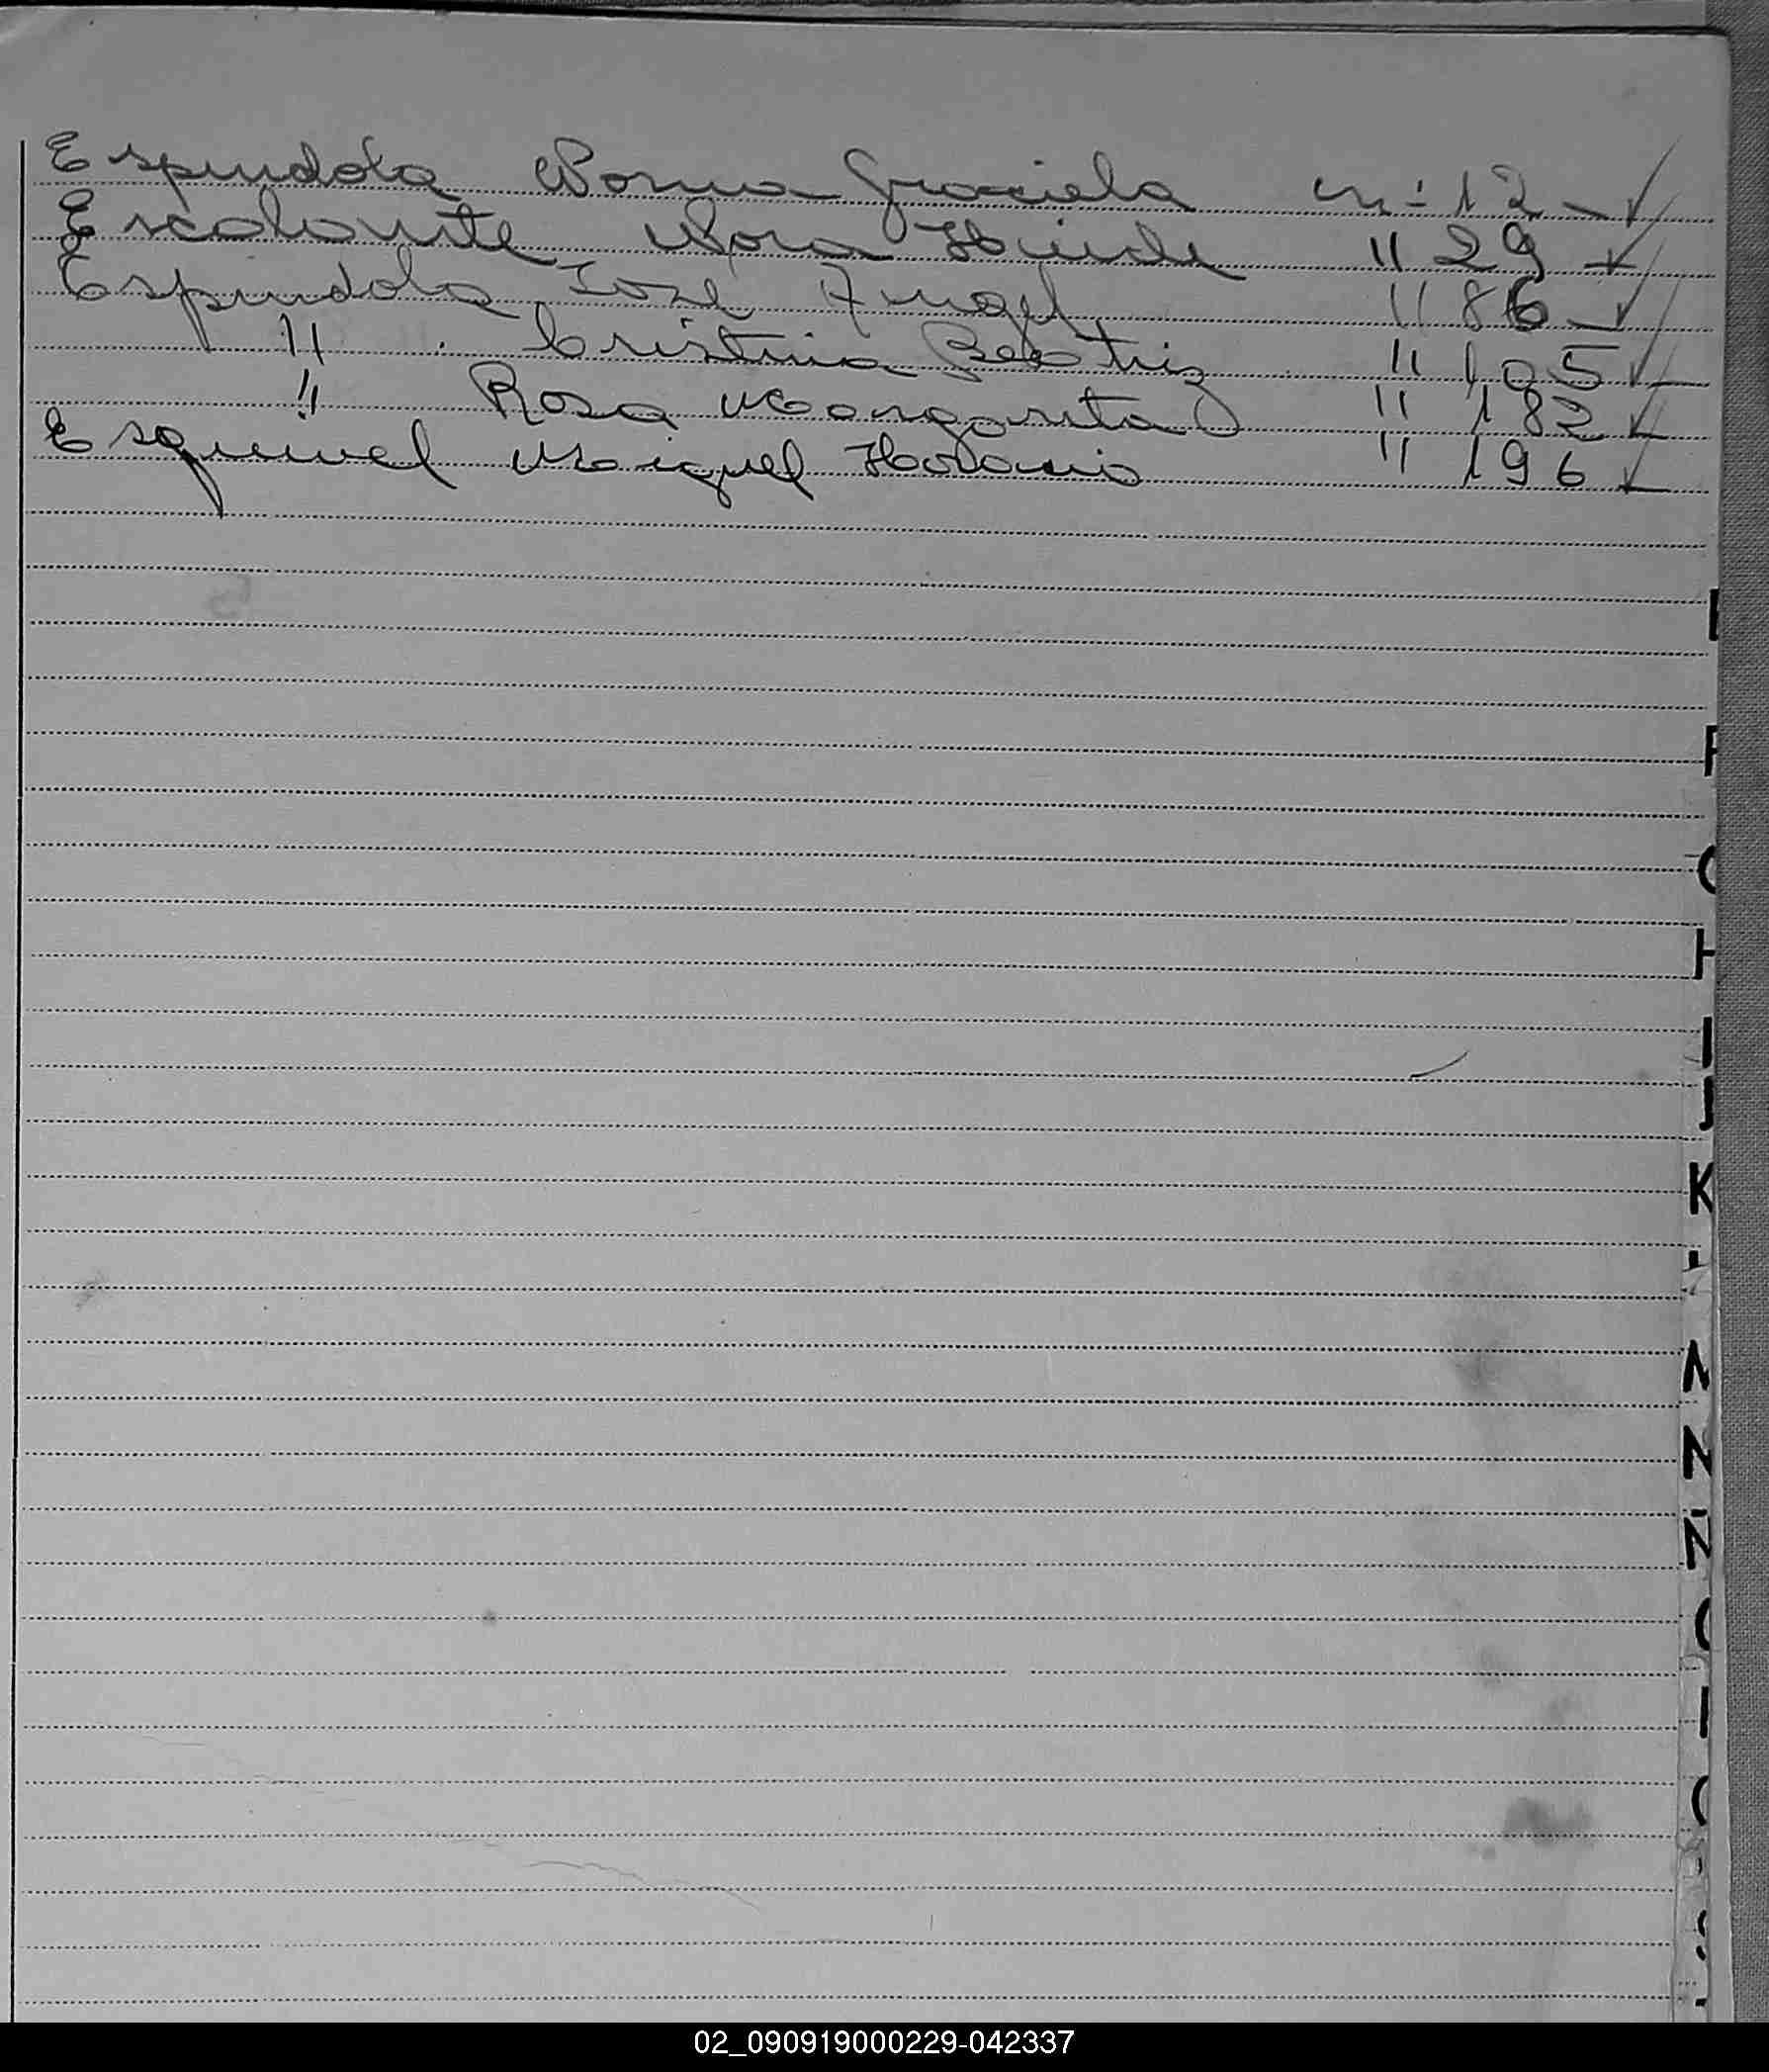 Espindola Norma Graciela n: 12
Escalante Nora Haide " 29
Espindola José Angel " 86
" Cristina Beatriz " 105
" Rosa Margarita " 182
Esquivel Miguel Horacio " 196
F
H
I
J
K
N
N
02_090919000229-042337